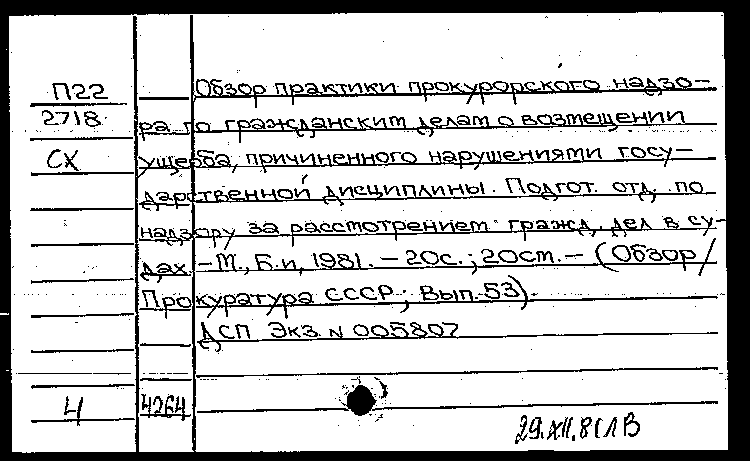 П22 Обзор практики прокурорского надзо-
2718 ра по гражданским делам о возмещении
СХ ущерба, причиненного нарушениями госу-
дарственной дисциплины. Подгот. отд. по
надзору за рассмотрением гражд. дел в су-
дах. – М., Б.и, 1981. – 20с.; 20см. – (Обзор /
Прокуратура СССР; Вып. 53).
ДСП Экз. N 005807
4 4264
29.XII.81 ЛВ